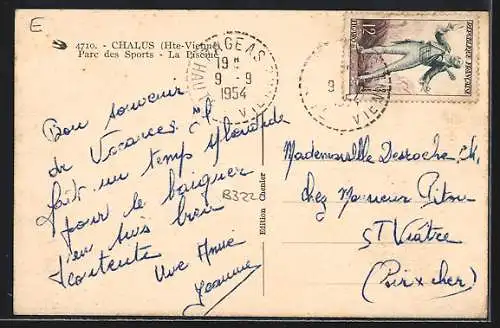 E
4710. - CHALUS (Hte-Vienne)
Parc des Sports - La Piscine
19 H
9 - 9
1954
12F
REPUBLIQUE FRANÇAISE
VIENNE
Bon souvenir
de Vacances il
fait un temps splendide
pour le baigner
en suis bien
contente
Une Amie
Jeanne
B322
Edition Chemler
Mademoiselle Desroche, ch.
chez Monsieur Piton
ST Viâtre
(Loir x cher)